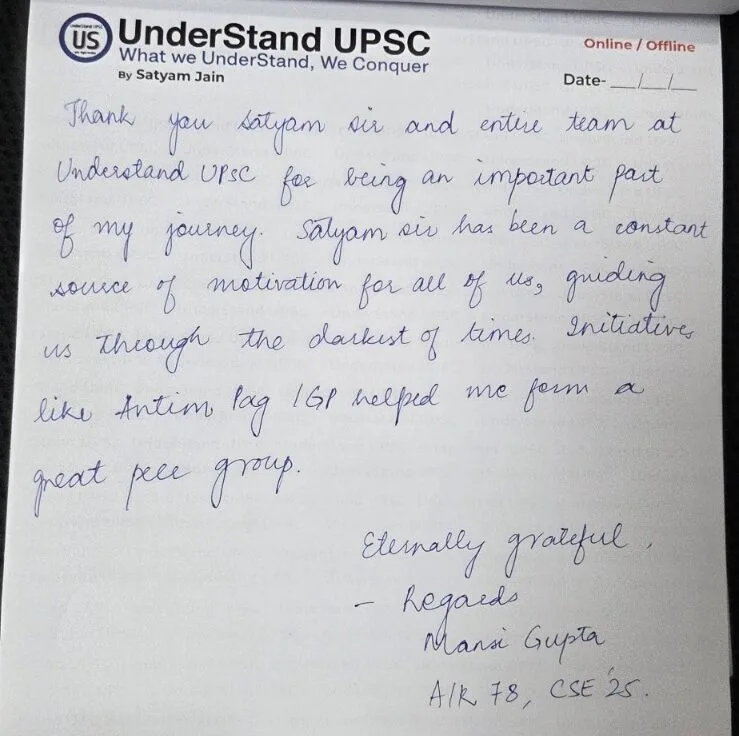 US
UnderStand UPSC
What we UnderStand, We Conquer
By Satyam Jain
Online / Offline
Date- __/__/__
Thank you Satyam sir and entire team at
Understand UPSC for being an important part
of my journey. Satyam sir has been a constant
source of motivation for all of us, guiding
us through the darkest of times. Initiatives
like Antim Pag / GP helped me form a
great peer group.
Eternally grateful.
- Regards
Mansi Gupta
AIR 78, CSE '25.